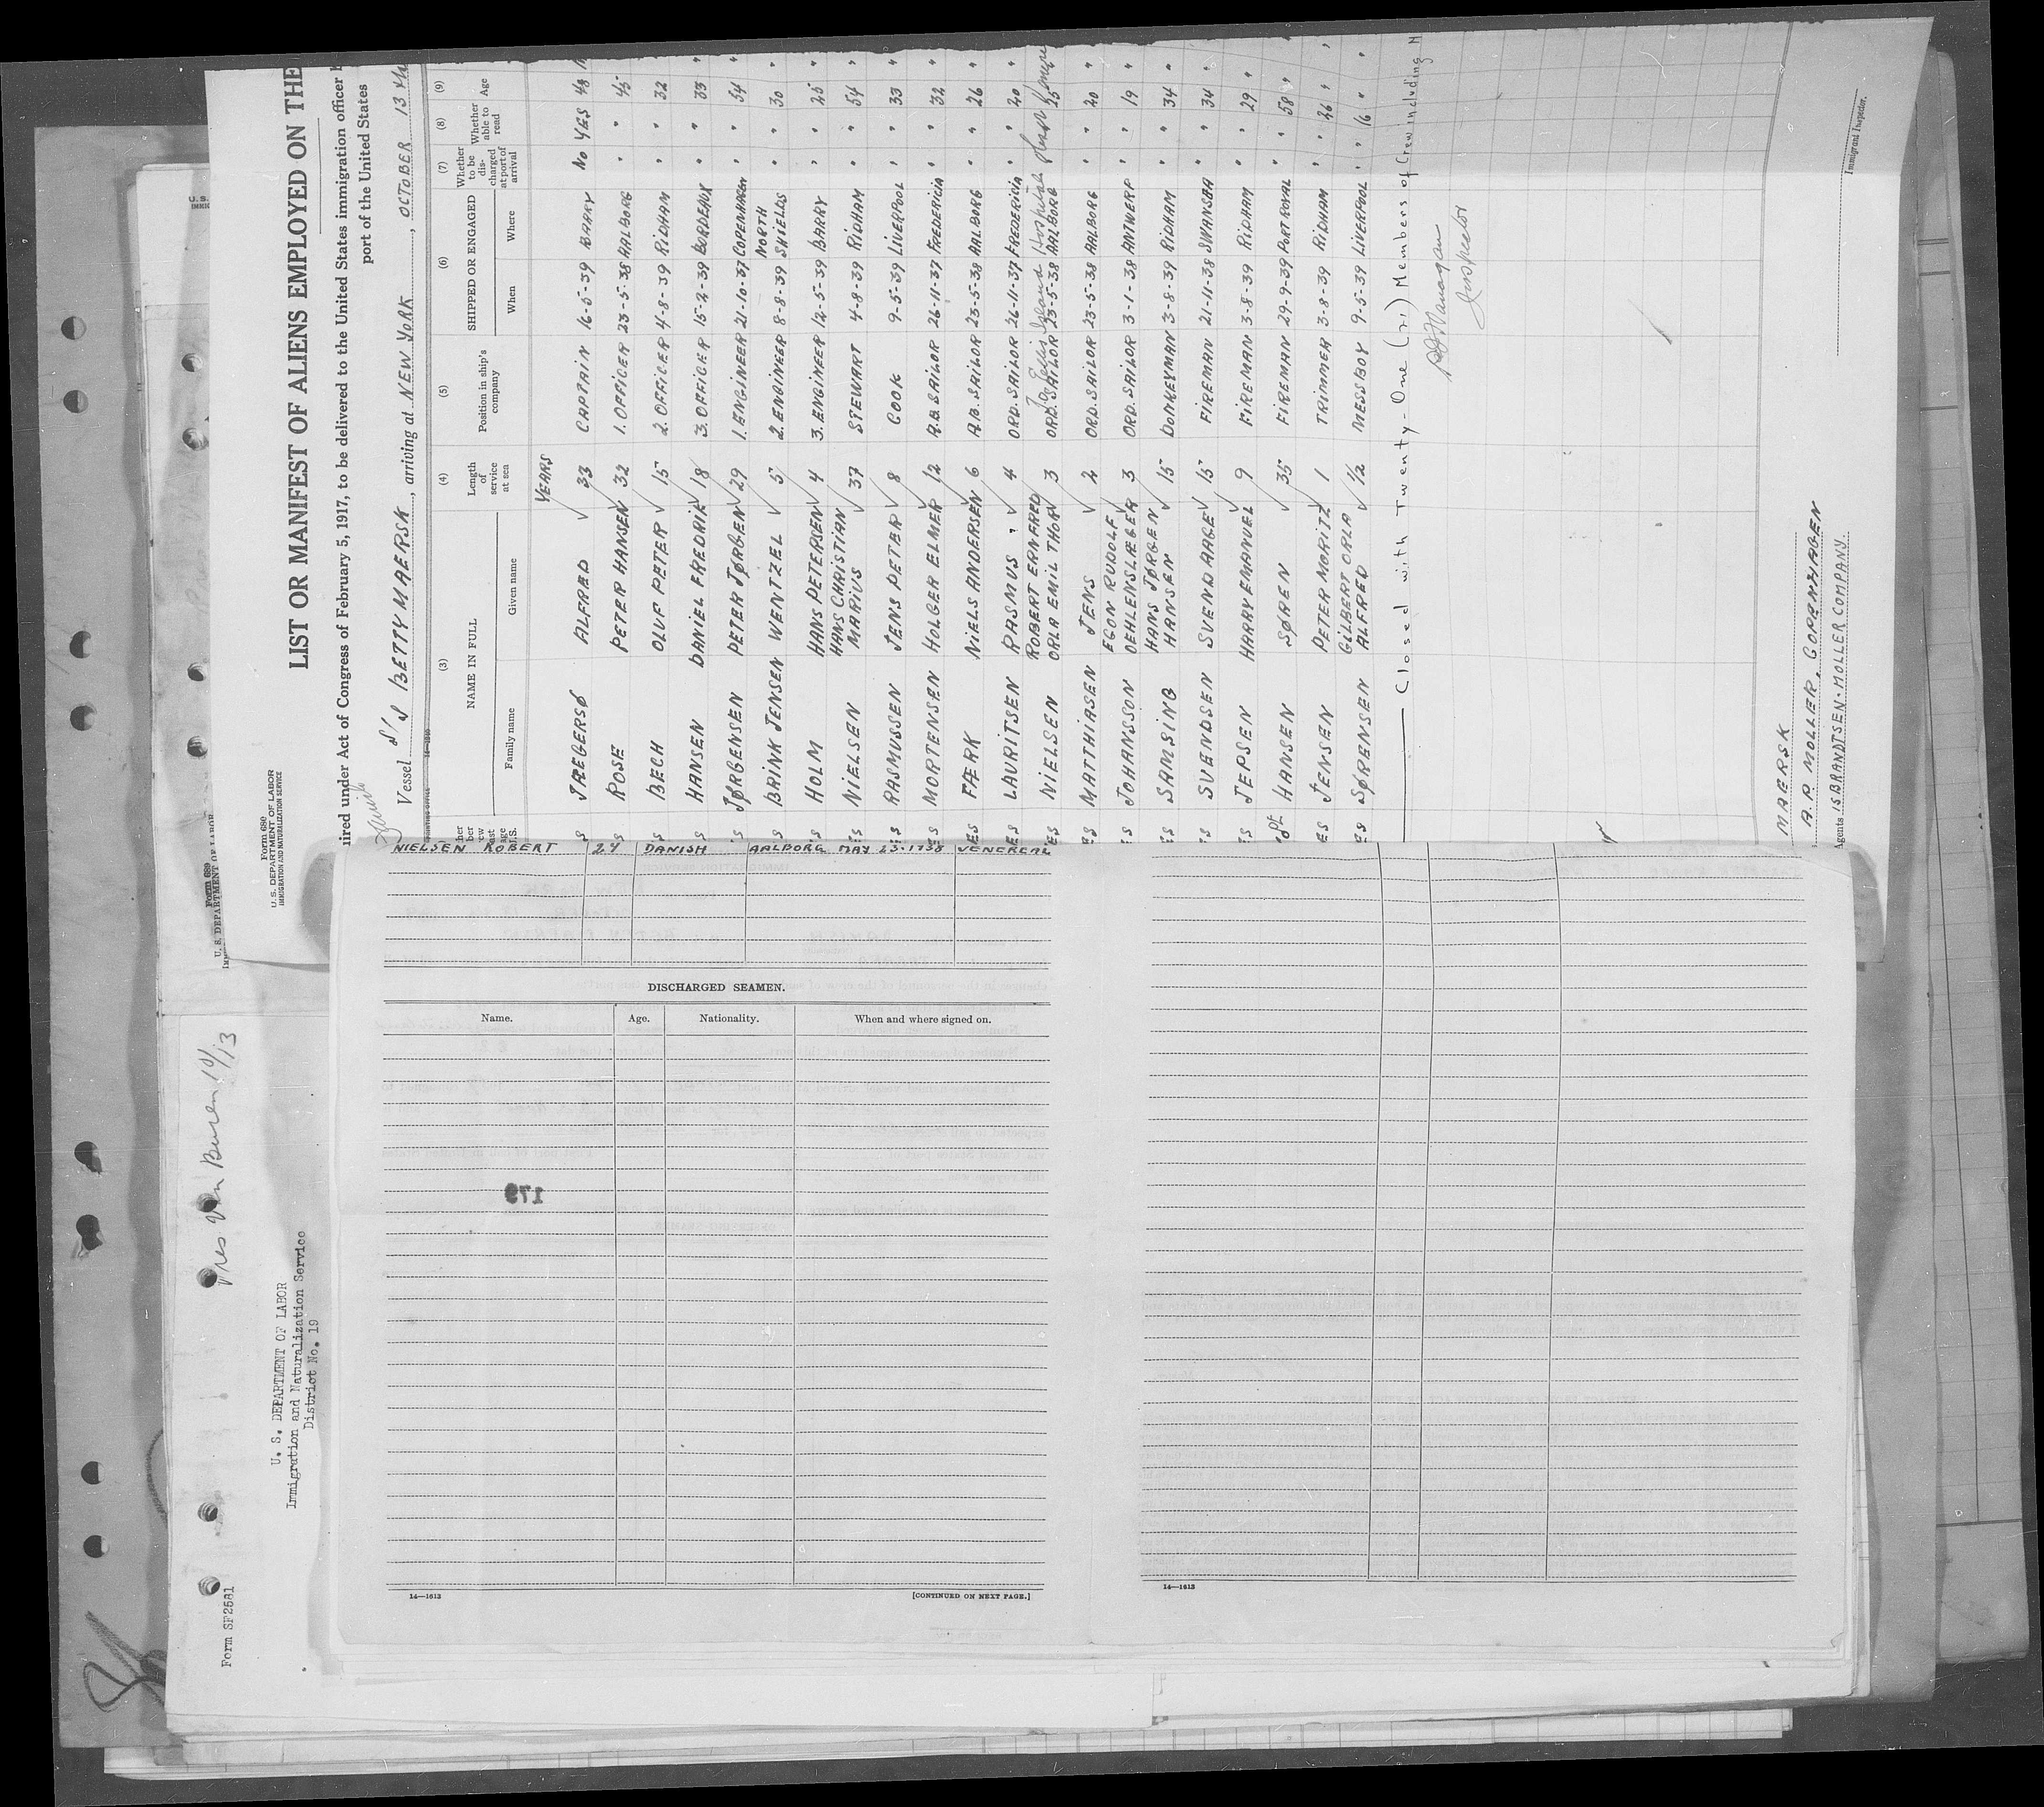 LIST OR MANIFEST OF ALIENS EMPLOYED ON THE
ired under Act of Congress of February 5, 1917, to be delivered to the United States immigration officer
port of the United States
Vessel S/S BETTY MAERSK, arriving at NEW YORK, OCTOBER 13th
Form 680
U. S. DEPARTMENT OF LABOR
IMMIGRATION AND NATURALIZATION SERVICE
(3) (4) (5) (6) (7) (8) (9)
NAME IN FULL Length of service at sea Position in ship's company SHIPPED OR ENGAGED Whether to be discharged at port of arrival Whether able to read Age
Family name Given name When Where
YEARS
JÆGERSØ ALFRED 33 CAPTAIN 16-5-39 BARRY NO YES 48
ROSE PETER HANSEN 32 1. OFFICER 23-5-38 AALBORG " " 45
BECH OLUF PETER 15 2. OFFICER 4-8-39 RIDHAM " " 32
HANSEN DANIEL FREDRIK 18 3. OFFICER 15-2-39 BORDEAUX " " 33
JØRGENSEN PETER JØRGEN 29 1. ENGINEER 21-10-37 COPENHAGEN " " 54
BRINK JENSEN WENTZEL 5 2. ENGINEER 8-8-39 NORTH SHIELDS " " 30
HOLM HANS PETERSEN 4 3. ENGINEER 12-5-39 BARRY " " 25
NIELSEN HANS CHRISTIAN MARIUS 37 STEWART 4-8-39 RIDHAM " " 54
RASMUSSEN JENS PETER 8 COOK 9-5-39 LIVERPOOL " " 33
MORTENSEN HOLGER ELMER 12 A.B. SAILOR 26-11-37 FREDERICIA " " 32
FÆRK NIELS ANDERSEN 6 A.B. SAILOR 23-5-38 AALBORG " " 26
LAURITSEN RASMUS 4 ORD. SAILOR 26-11-37 FREDERICIA " " 20
To Ellis Island Hospital
NIELSEN ROBERT ERNFRED ORLA EMIL THORV 3 ORD. SAILOR 23-5-38 AALBORG 25
MATTHIASEN JENS 2 ORD. SAILOR 23-5-38 AALBORG " " 20
JOHANSSON EGON RUDOLF OEHLENSLÆGER 3 ORD. SAILOR 3-1-38 ANTWERP " " 19
SAMSING HANS JØRGEN HANSEN 15 DONKEYMAN 3-8-39 RIDHAM " " 34
SVENDSEN SVEND AAGE 15 FIREMAN 21-11-38 SWANSEA " " 34
JEPSEN HARRY EMANUEL 9 FIREMAN 3-8-39 RIDHAM " " 29
HANSEN SØREN 35 FIREMAN 29-9-39 PORT ROYAL " " 58
JENSEN PETER MORITZ 1 TRIMMER 3-8-39 RIDHAM " " 26
SØRENSEN GILBERT ORLA ALFRED 1/2 MESSBOY 9-5-39 LIVERPOOL " " 16
Closed with Twenty-One (21) Members of Crew including
Inspector
Immigrant Inspector.
MAERSK
A.P. MOLLER, COPENHAGEN
Agents ISBRANDTSEN-MOLLER COMPANY.
Form 689
U. S. DEPARTMENT OF LABOR
Pres Van Buren 10/13
U. S. DEPARTMENT OF LABOR
Immigration and Naturalization Service
District No. 19
Form SF2581
NIELSEN ROBERT 24 DANISH AALBORG MAY 23-1938 VENEREAL
DISCHARGED SEAMEN.
Name. Age. Nationality. When and where signed on.
179
14—1613 [CONTINUED ON NEXT PAGE.]
14—1613